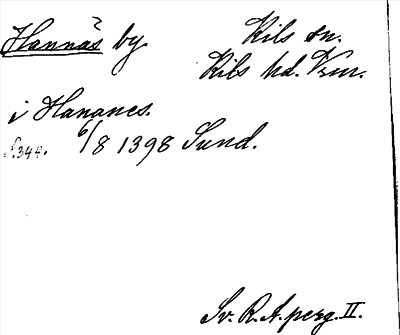 ?
Hannäs by. Kils sn.
Kils hd. Vrm.
i Hananes.
S.344. 6/8 1398 Sund.
Sv. R. A. perg. II.